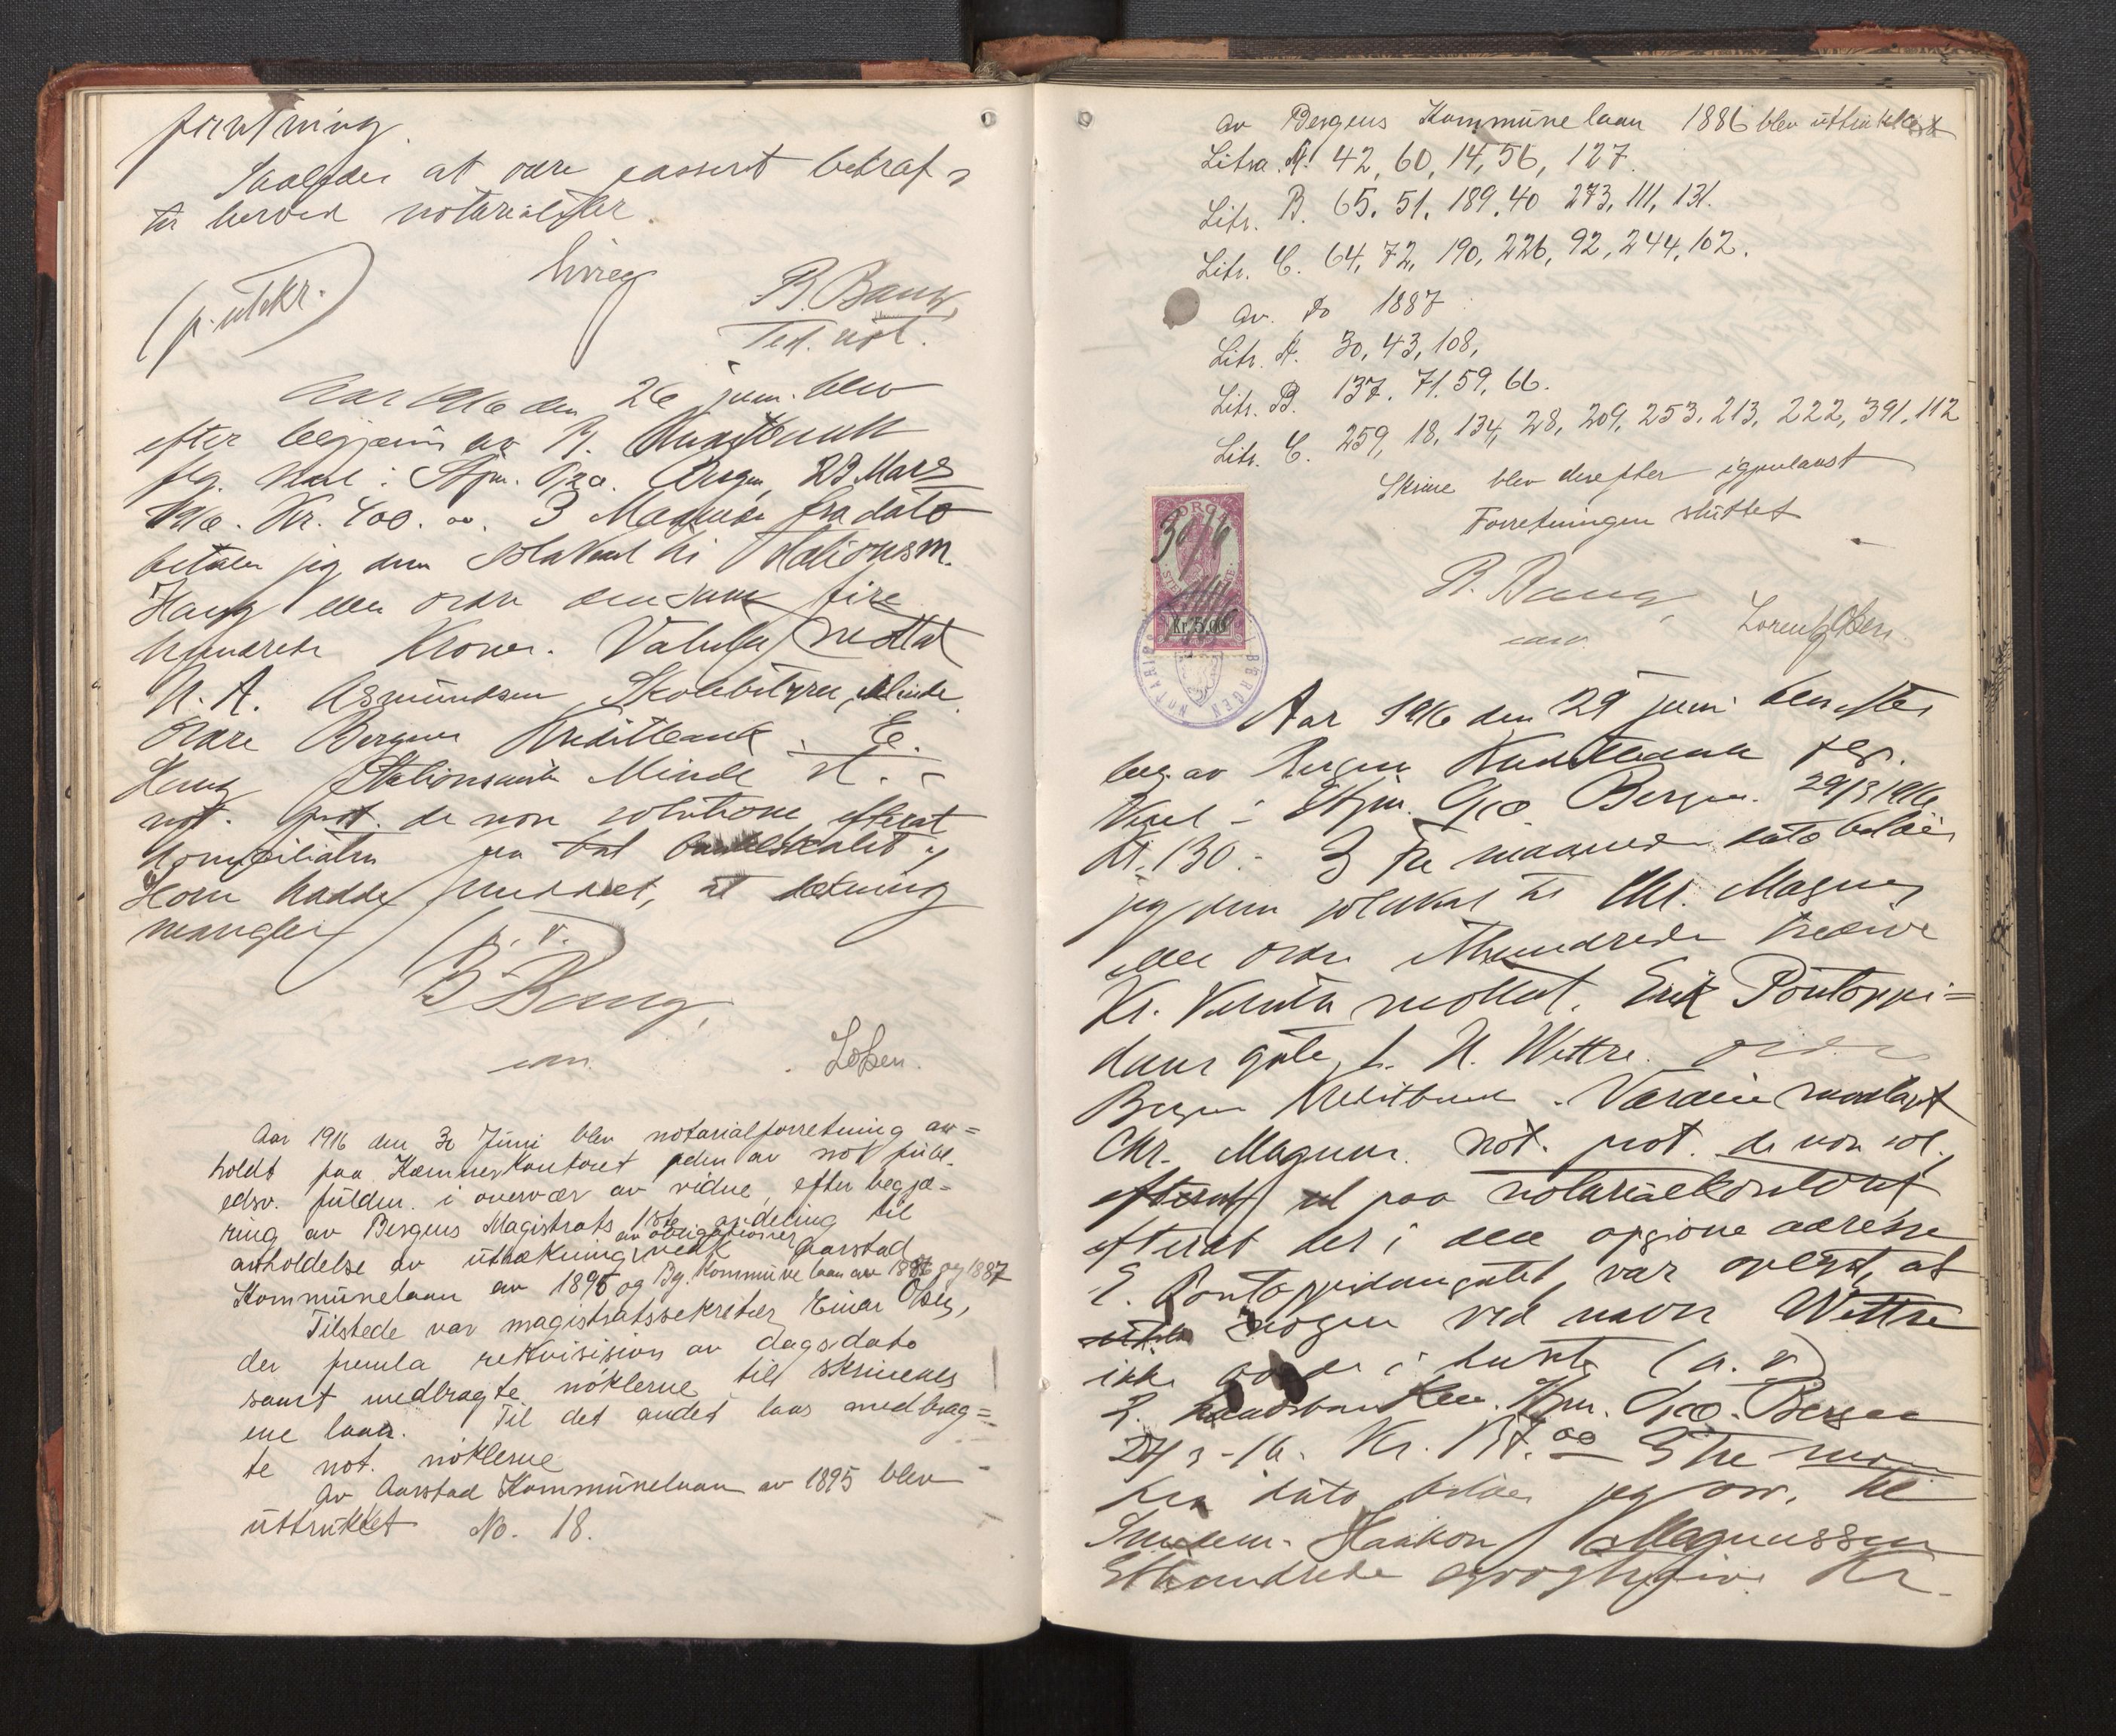 forretning.
Saaledes at være passert bekræf-
tes herved notarialiter.
B. Bang
(p. utskr.)
Ted. not.
Aar 1916 den 26 juni blev
efter begjæring av B. Kreditbank
flg. veksel: Stpm. Bergen, 22 Mars
1916. Kr. 400.00. 3 Maaneder fra dato
betaler jeg denne solaveksel til Stationsm.
Haug eller ordre den sum fire
hundrede Kroner. Valuta mottat
N. A. Asmundsen, Skolebestyrer, Minde
Ordre Bergens Kreditbank. E.
Haug Stationsmester Minde
not. prot. de non solutione, efterat
domiciliaten
Hom hadde meddelt, at dækning
mangler (p. v.)
B. Bang
Aar 1916 den 30 Juni blev notarialforretning av=
holdt paa Kæmnerkontoret peder av not publ.
edsv. fuldm. i overvær av vidne, efter begjæ-
ring av Bergens Magistrats 1ste avdeling til
avholdelse av uttrækning av obligationer vedk Aarstad
Kommunelaan av 1895 og Bg. Kommunelaan av 1886 og 1887
Tilstede var magistratssekretær Einar Olsen,
der fremla rekvisision av dagsdato
samt medbragte nöklerne til skrinenes
ene laas. Til det andet laas medbrag=
te not. nöklerne
Av Aarstad Kommunelaan av 1895 blev
uttrukket No. 18.
av Bergens Kommunelaan 1886 blev uttrukket
Litra. A. 42, 60, 14, 56, 127.
Litr. B. 65. 51. 189. 40 273, 111, 131.
Litr. C. 64, 72, 190, 226, 92, 244, 102.
av. Do 1887
Litr. A. 30, 43, 108,
Litr. B. 137. 71. 59. 66.
Litr. C. 259, 18, 134, 28, 209, 253. 213, 222, 391, 112
Skrine blev derefter igjenlaast
Forretningen sluttet
B. Bang
Lorentz Olsen
NORGE
30/6
Kr. 5,00
NOTARIUS BERGEN
Aar 1916 den 29 juni blev efter
beg. av Bergens Kreditbank flg.
Veksel: Stpm. Bergen. 29/3 1916
Kr. 130.- 3 Tre maaneder dato betaler
jeg denne solaveksel til Chr. Magnus
eller ordre Ethundrede tredive
Kr. Valuta mottat. Erik Pontoppi=
dans gate, L. N. Wettre. ordre
Bergens Kreditbank. Værdien modtat
Chr. Magnus. not. prot. de non sol.,
efterat paa notarialkontoret
efterat der i den opgivne adresse
E. Pontoppidansgate, var oplyst, at
nogen ved navn Wettre
ikke i huset (p. v)
2. Stpm. Bergen
Kr. 137.00 3 Tre
fra dato betaler jeg osv. til
Haakon Magnussen
Ethundrede ogsyvogtredive Kr.